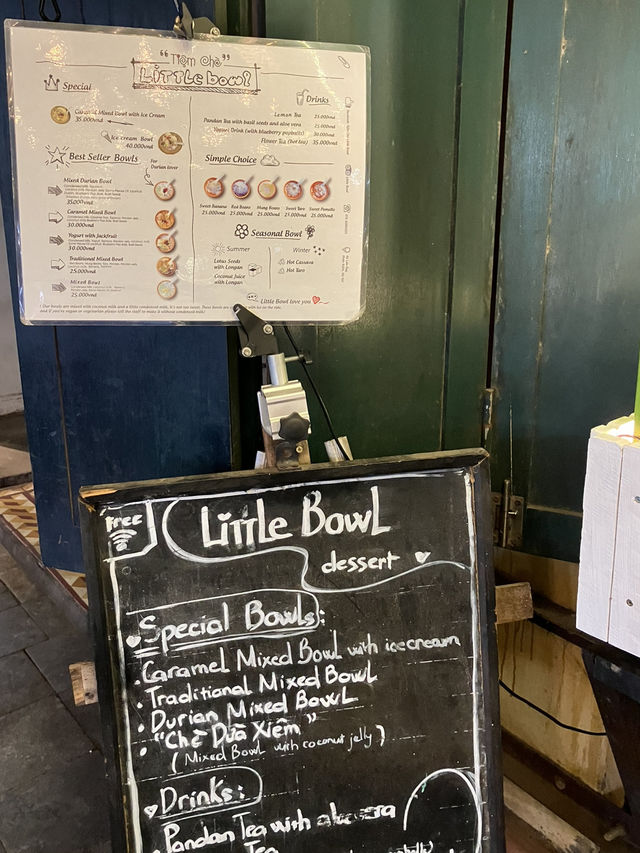 "Tiệm Chè"
Little bowl
Special
Caramel Mixed Bowl with Ice Cream
35.000vnd
Ice cream Bowl
40.000vnd
Best Seller Bowls
For
Durian lover
Mixed Durian Bowl
35.000vnd
Caramel Mixed Bowl
30.000vnd
Yogurt with Jackfruit
30.000vnd
Traditional Mixed Bowl
25.000vnd
Mixed Bowl
25.000vnd
Drinks
Lemon Tea 25.000vnd
Pandan Tea with basil seeds and aloe vera 25.000vnd
Yogurt Drink (with blueberry popballs) 30.000vnd
Flower Tea (hot tea) 35.000vnd
Simple Choice
Sweet Banana Red Beans Mung Beans Sweet Taro Sweet Pomelo
25.000vnd 25.000vnd 25.000vnd 25.000vnd 25.000vnd
Seasonal Bowl
Summer
Lotus Seeds
with Longan
Coconut Juice
with Longan
Winter
Hot Cassava
Hot Taro
Little Bowl love you
Free
Little Bowl
dessert
Special Bowls:
. Caramel Mixed Bowl with icecream
. Traditional Mixed Bowl
. Durian Mixed Bowl
. "Chè Dừa Xiêm"
(Mixed Bowl with coconut jelly)
Drinks:
. Pandan Tea with aloe vera
Tea